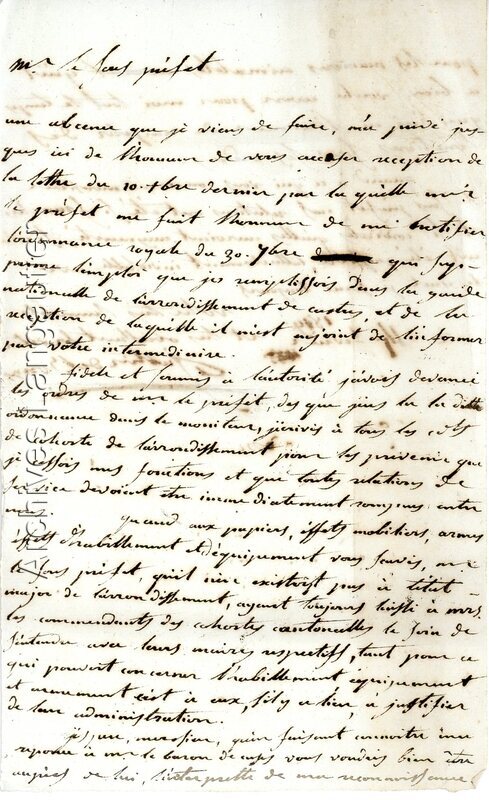 mr. le sous préfet
une absence que je viens de faire, m'a privé jus-
ques ici de l'honneur de vous accuser reception de
la lettre du 10. xbre dernier par la quelle mr.
le préfet me fait l'honneur de me notifier
l'ordonnance royale du 30. 7bre qui sup-
prime l'emploi que je remplissois dans la garde
nationalle de l'arrondissement de castres, et de la
reception de laquelle il m'est enjoint de l'informer
par votre intermediaire.
fidele et soumis à l'autorité j'avois devancé
les ordres de mr le préfet, des que j'eus lu la ditte
ordonnance dans le moniteur, j'ecrivis à tous les
de cohorte de l'arrondissement pour les prévenir que
je cessois mes fonctions et que toutes relations de
service devoient être immediatement rompues entre
nous. quand aux papiers, effets mobiliers, armes
effets d'habillement et d'équipement vous savés, mr
le sous préfet, qu'il n'en existoit pas à l'etat-
major de l'arrondissement, ayant toujours laissé à mrs
les commendants des cohortes cantonalles le soin de
s'entendre avec leurs maires respectifs, tant pour ce
qui pouvoit concerner l'habillement equipement
et armement c'est à eux, s'il y a lieu, à justifier
de leur administration.
monsieur, qu'en faisant connoitre ma
reponse à mr le baron de vous voudrés bien être
auprès de lui, l'interprette de ma reconnoissance
Archives-Laugentier